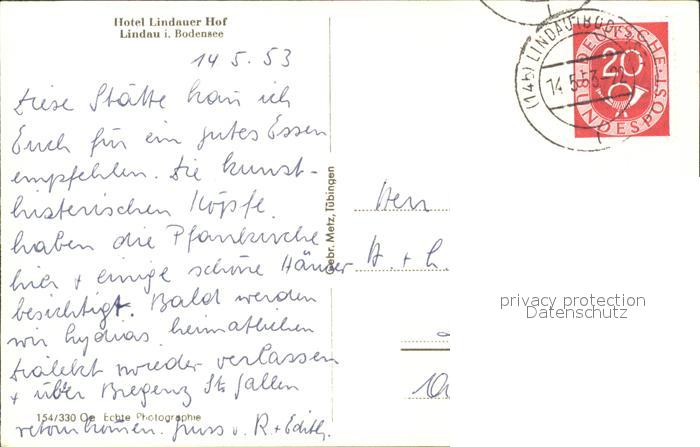 Hotel Lindauer Hof
Lindau i. Bodensee
14 5. 53
Diese Stätte kann ich
Euch für ein gutes Essen
empfehlen. Die kunst-
historischen Köpfe
haben die Pfarrkirche
hier + einige schöne Häuser
besichtigt. Bald werden
wir Lydias heimatlichen
Dialekt wieder verlassen
+ über Bregenz St. Gallen
retourkommen. Gruss v. R + Edith.
154/330 Oe Echte Photographie
Gebr. Metz, Tübingen
(14b) LINDAU (BODENSEE)
14.5.53-22
DEUTSCHE
20
BUNDESPOST
Herr
A. + L.
privacy protection
Datenschutz